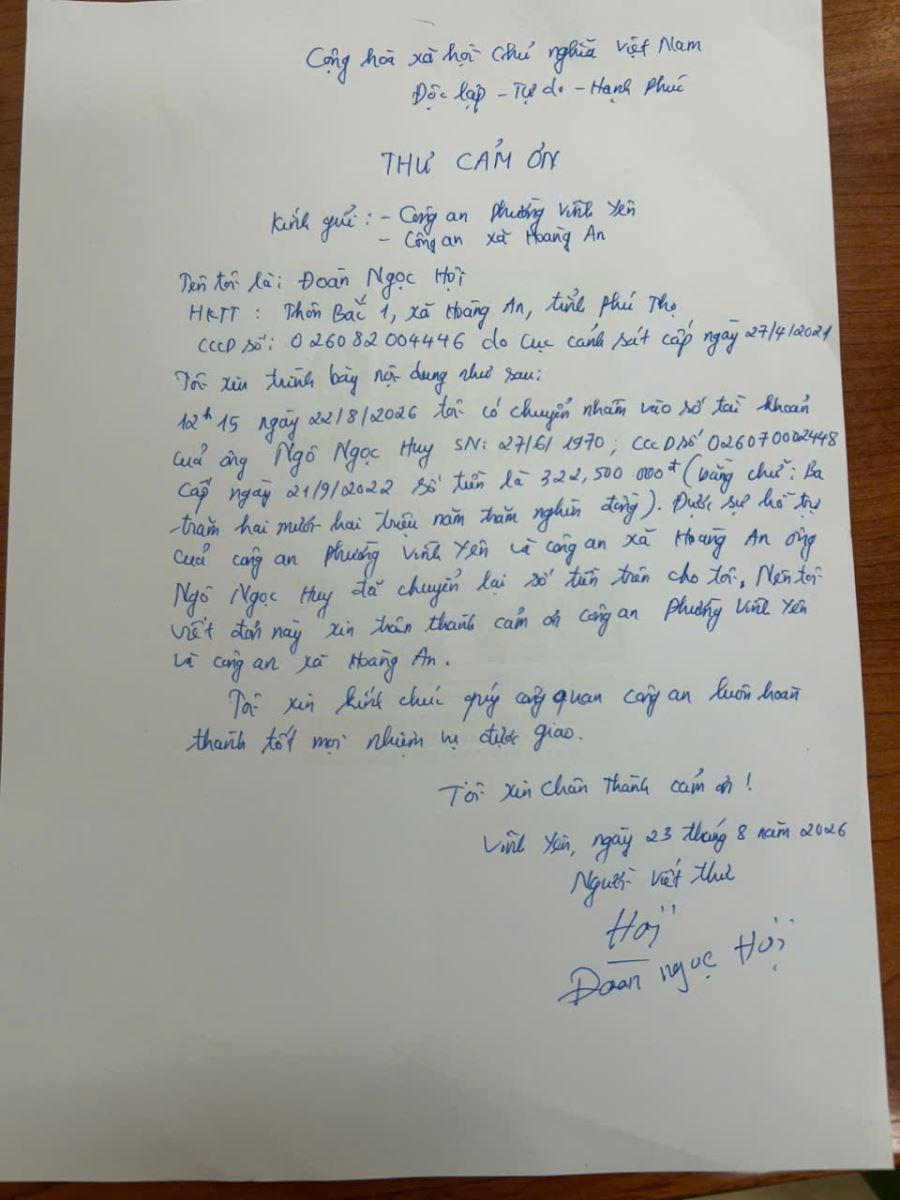 Cộng hòa xã hội chủ nghĩa Việt Nam
Độc lập - Tự do - Hạnh phúc
THƯ CẢM ƠN
Kính gửi : - Công an phường Vĩnh Yên
- Công an xã Hoàng An
Tên tôi là: Đoàn Ngọc Hội
HKTT : Thôn Bắc 1, xã Hoàng An, tỉnh Phú Thọ
CCCD số: 026082004446 do cục cảnh sát cấp ngày 27/4/2021
Tôi xin trình bày nội dung như sau:
12h15 ngày 22/8/2026 tôi có chuyển nhầm vào số tài khoản
của ông Ngô Ngọc Huy SN: 27/6/1970, CCCD số 026070002448
cấp ngày 21/9/2022 số tiền là 322,500 000đ (bằng chữ: Ba
trăm hai mươi hai triệu năm trăm nghìn đồng). Được sự hỗ trợ
của công an phường Vĩnh Yên và công an xã Hoàng An ông
Ngô Ngọc Huy đã chuyển lại số tiền trên cho tôi, Nên tôi
viết đơn này xin trân thành cảm ơn công an phường Vĩnh Yên
và công an xã Hoàng An.
Tôi xin kính chúc quý công quan công an luôn hoàn
thành tốt mọi nhiệm vụ được giao.
Tôi xin chân thành cảm ơn !
Vĩnh Yên, ngày 23 tháng 8 năm 2026
Người viết thư
Hội
Đoàn Ngọc Hội